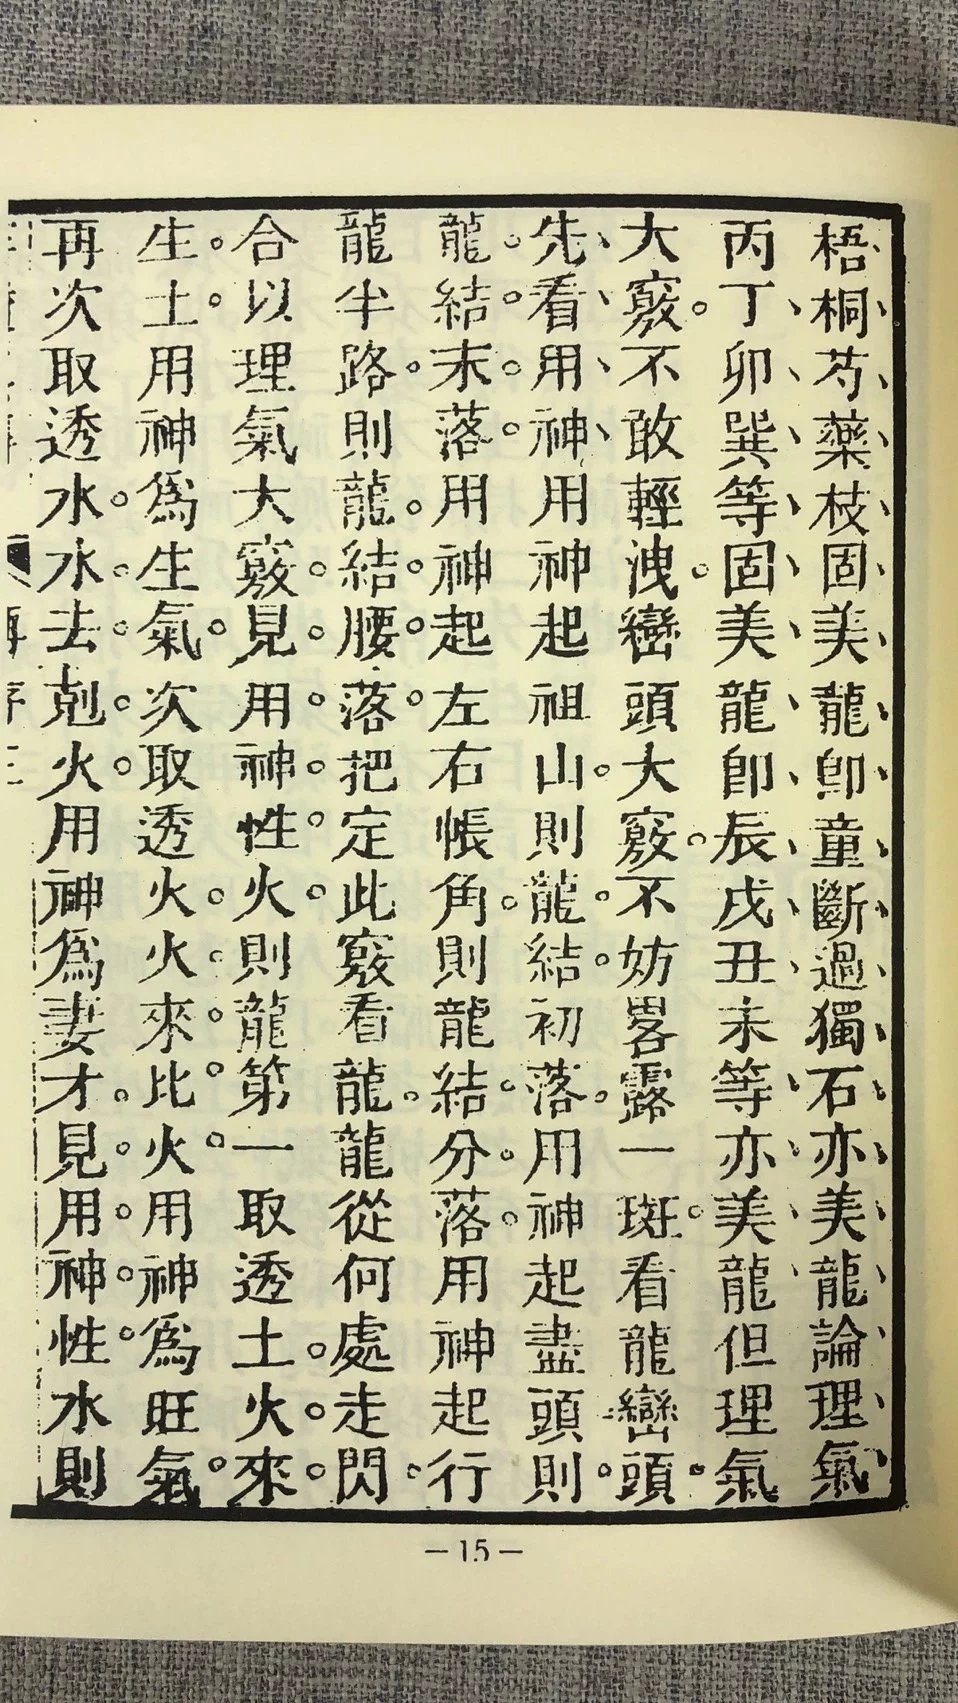 梧桐芍藥枝固美龍卽童斷過獨石亦美龍論理氣
丙丁卯巽等固美龍卽辰戌丑未等亦美龍但理氣
大竅不敢輕洩巒頭大竅不妨畧露一斑看龍巒頭
先看用神用神起祖山則龍結初落用神起盡頭則
龍結末落用神起左右帳角則龍結分落用神起行
龍半路則龍結腰落把定此竅看龍龍從何處走閃
合以理氣大竅見用神性火則龍第一取透土火來
生土用神爲生氣次取透火火來比火用神爲旺氣
再次取透水水去剋火用神爲妻才見用神性水則
—15—